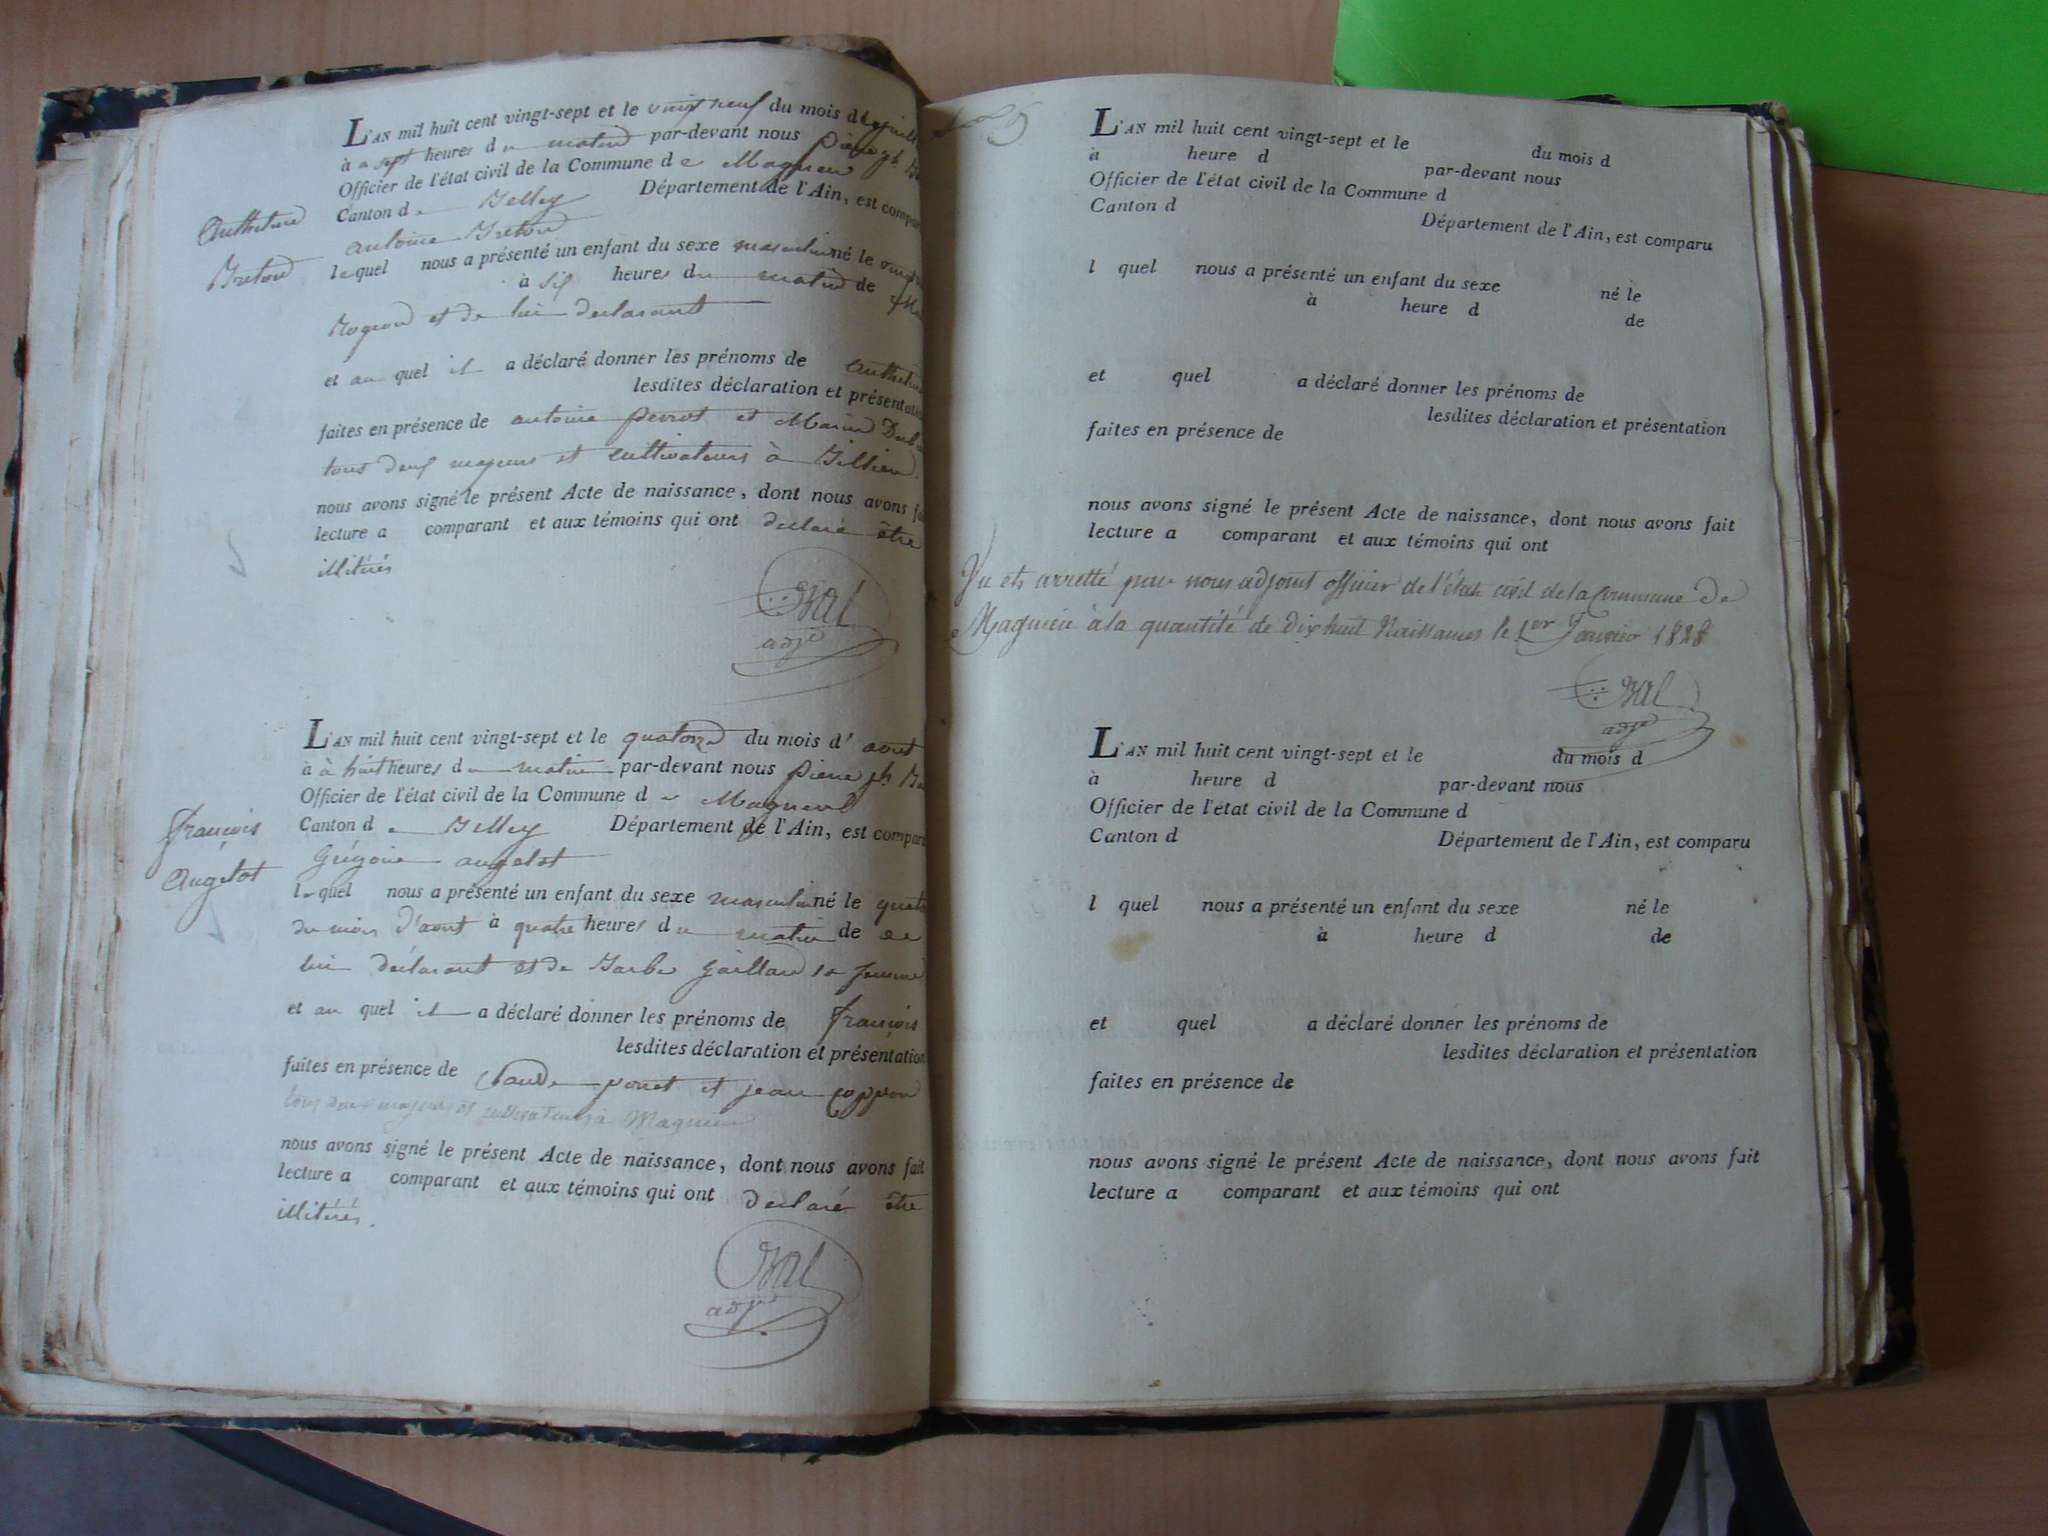 L'AN mil huit cent vingt-sept et le vingt neuf du mois de juillet
à a sept heures du matin par-devant nous pierre jh
Officier de l'état civil de la Commune de Magnieu
Canton de Belley Département de l'Ain, est comparu
antoine Breton
Anthelme
Breton
lequel nous a présenté un enfant du sexe masculin né le
à six heures du matin de
Rognon et de lui declarant
et au quel il a déclaré donner les prénoms de Anthelme
lesdites déclaration et présentation
faites en présence de antoine perrot et Marin
tous deux majeurs et cultivateurs à Billieu
nous avons signé le présent Acte de naissance, dont nous avons fait
lecture a comparant et aux témoins qui ont declaré être
illitérés
Bal
adjt
L'AN mil huit cent vingt-sept et le quatorze du mois d'aout
à à huit heures du matin par-devant nous pierre jh
Officier de l'état civil de la Commune de Magnieu
Canton de Belley Département de l'Ain, est comparu
Grégoire augelot
françois
Augelot
lequel nous a présenté un enfant du sexe masculin né le
du mois d'aout à quatre heures du matin de
lui déclarant et de Barbe Gaillard sa femme
et au quel il a déclaré donner les prénoms de françois
lesdites déclaration et présentation
faites en présence de Claude et jean
tous deux majeurs et cultivateurs à Magnieu
nous avons signé le présent Acte de naissance, dont nous avons fait
lecture a comparant et aux témoins qui ont declaré être
illitérés.
Bal
adjt
L'AN mil huit cent vingt-sept et le du mois d
à heure d par-devant nous
Officier de l'état civil de la Commune d
Canton d Département de l'Ain, est comparu
l quel nous a présenté un enfant du sexe né le
à heure d de
et quel a déclaré donner les prénoms de
lesdites déclaration et présentation
faites en présence de
nous avons signé le présent Acte de naissance, dont nous avons fait
lecture a comparant et aux témoins qui ont
Vu et arretté par nous adjoint officier de l'état civil de la Commune de
Magnieu à la quantité de Dix huit Naissances le 1er Janvier 1828
Bal
adjt
L'AN mil huit cent vingt-sept et le du mois d
à heure d par-devant nous
Officier de l'état civil de la Commune d
Canton d Département de l'Ain, est comparu
l quel nous a présenté un enfant du sexe né le
à heure d de
et quel a déclaré donner les prénoms de
lesdites déclaration et présentation
faites en présence de
nous avons signé le présent Acte de naissance, dont nous avons fait
lecture a comparant et aux témoins qui ont